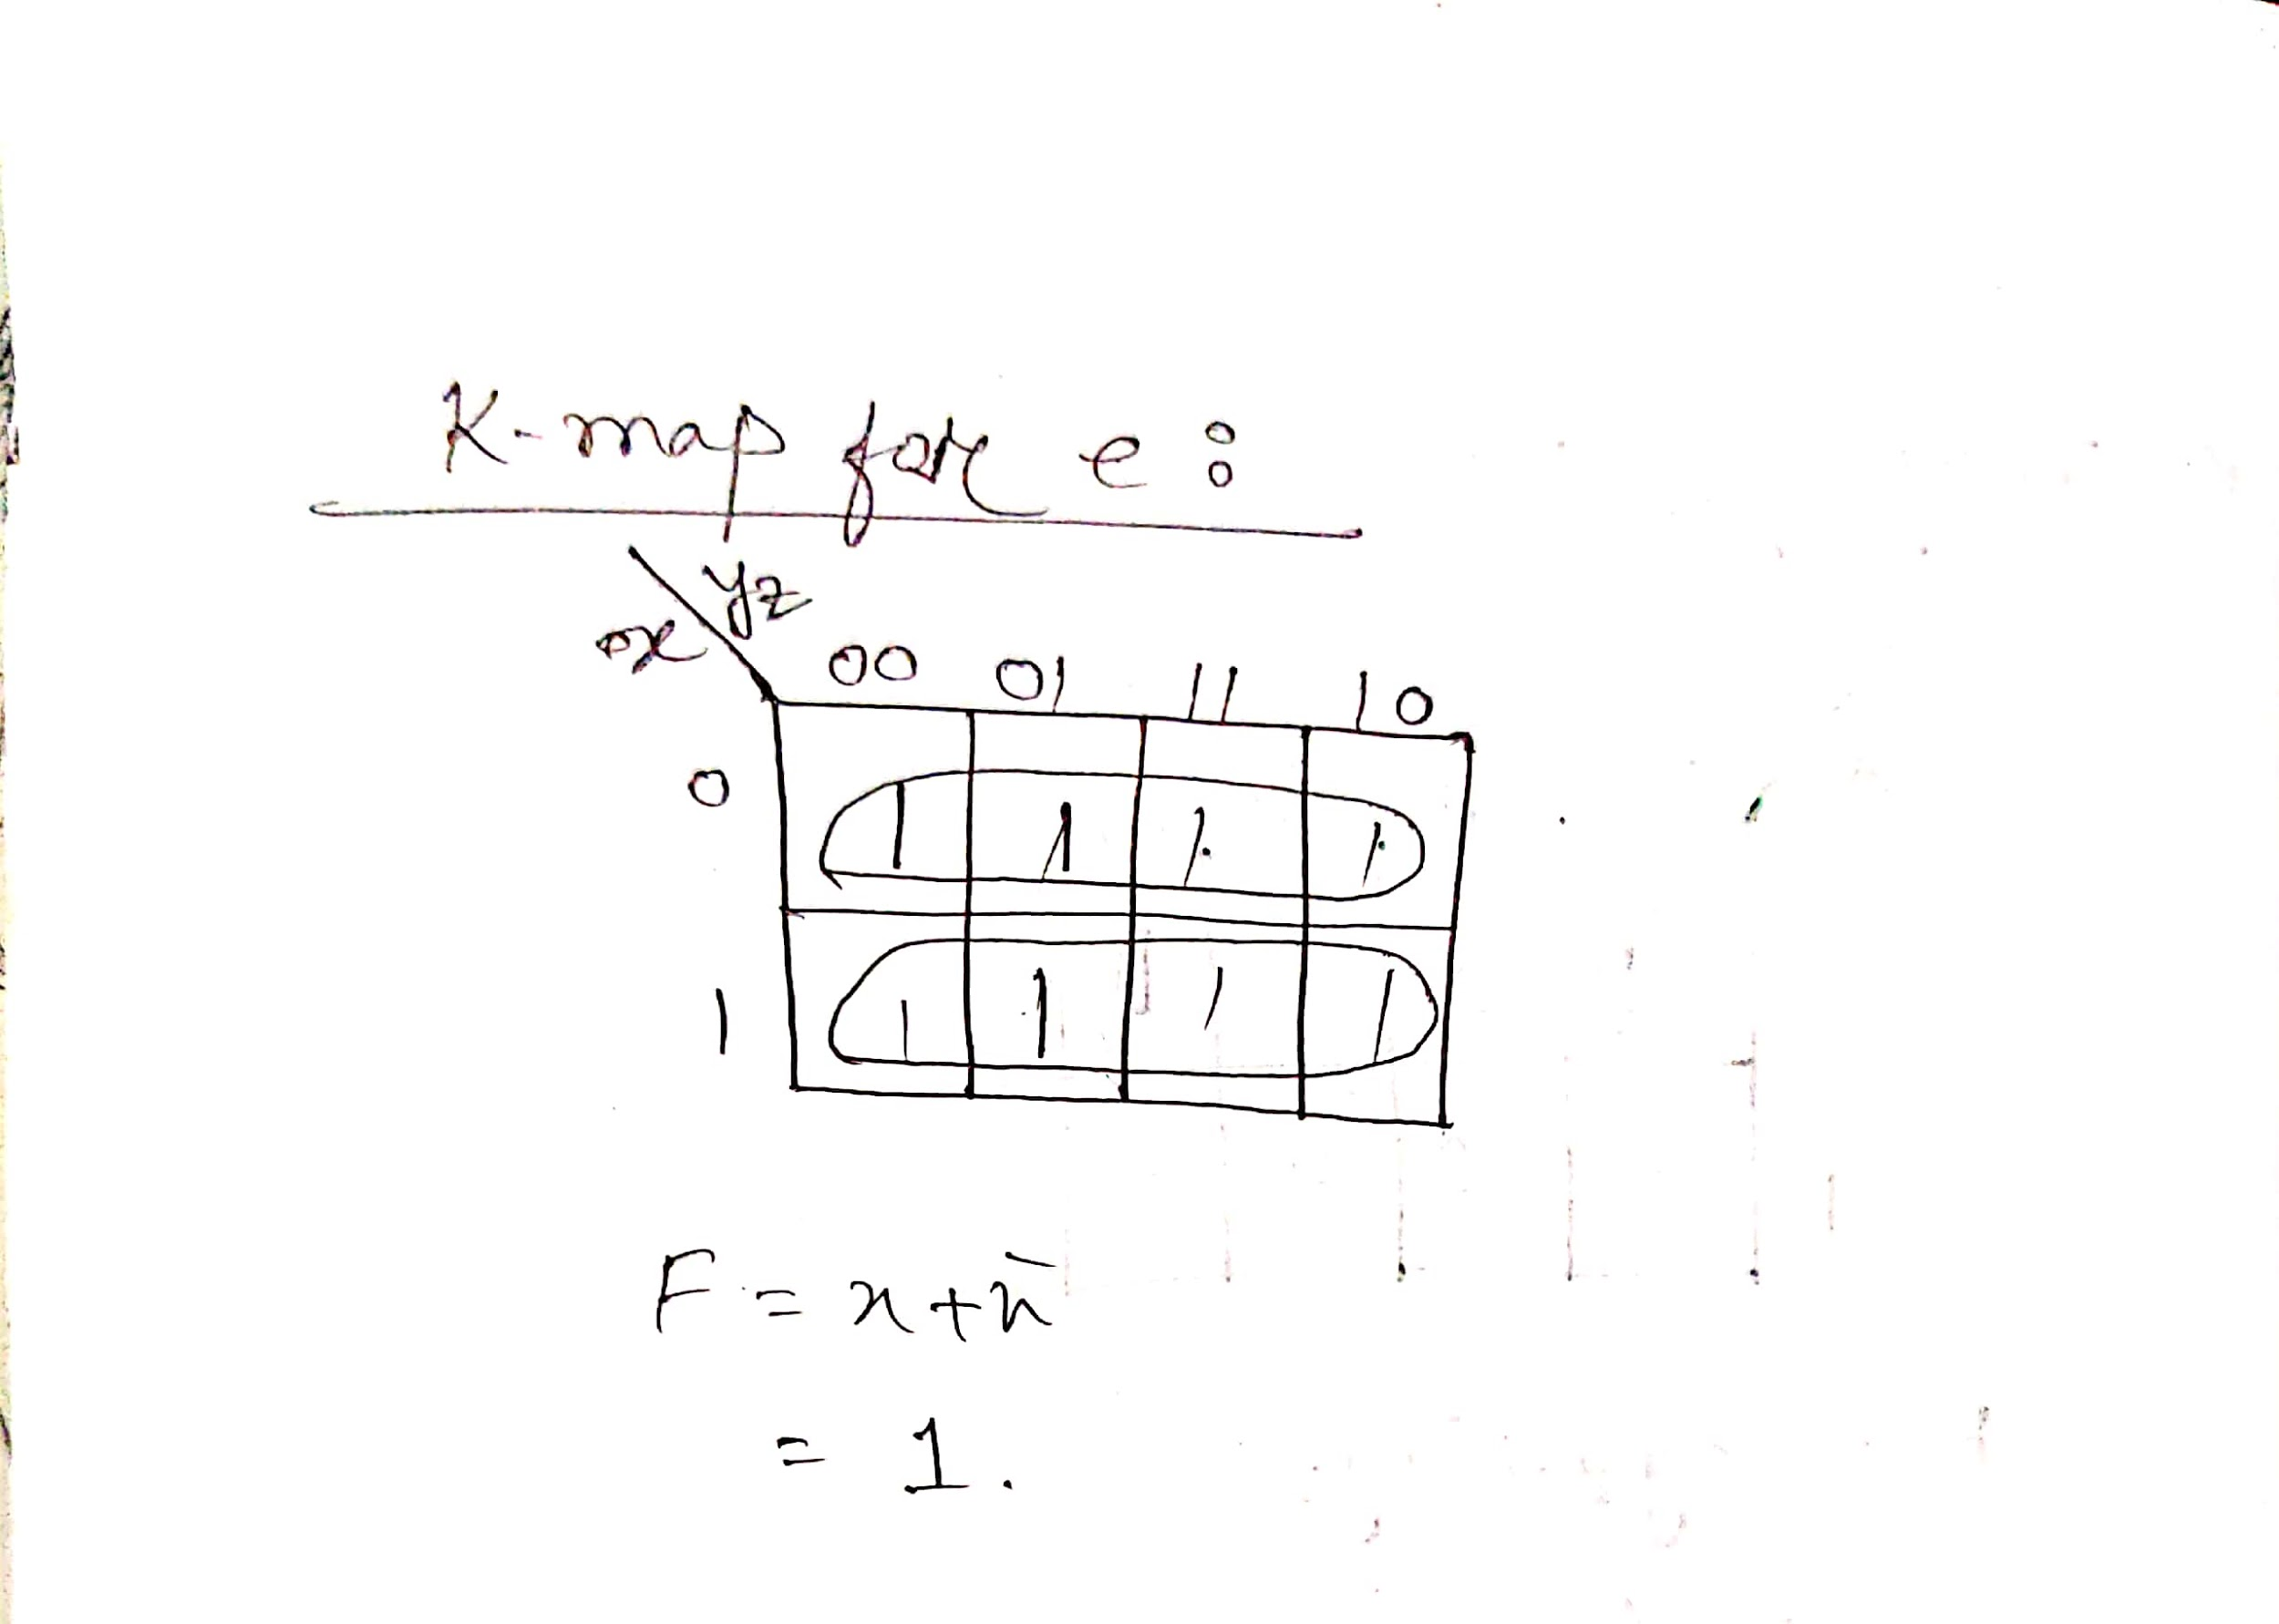 K-map for e:
yz
x
00 01 11 10
0 1 1 1 1
1 1 1 1 1
F = x + x̄
= 1.